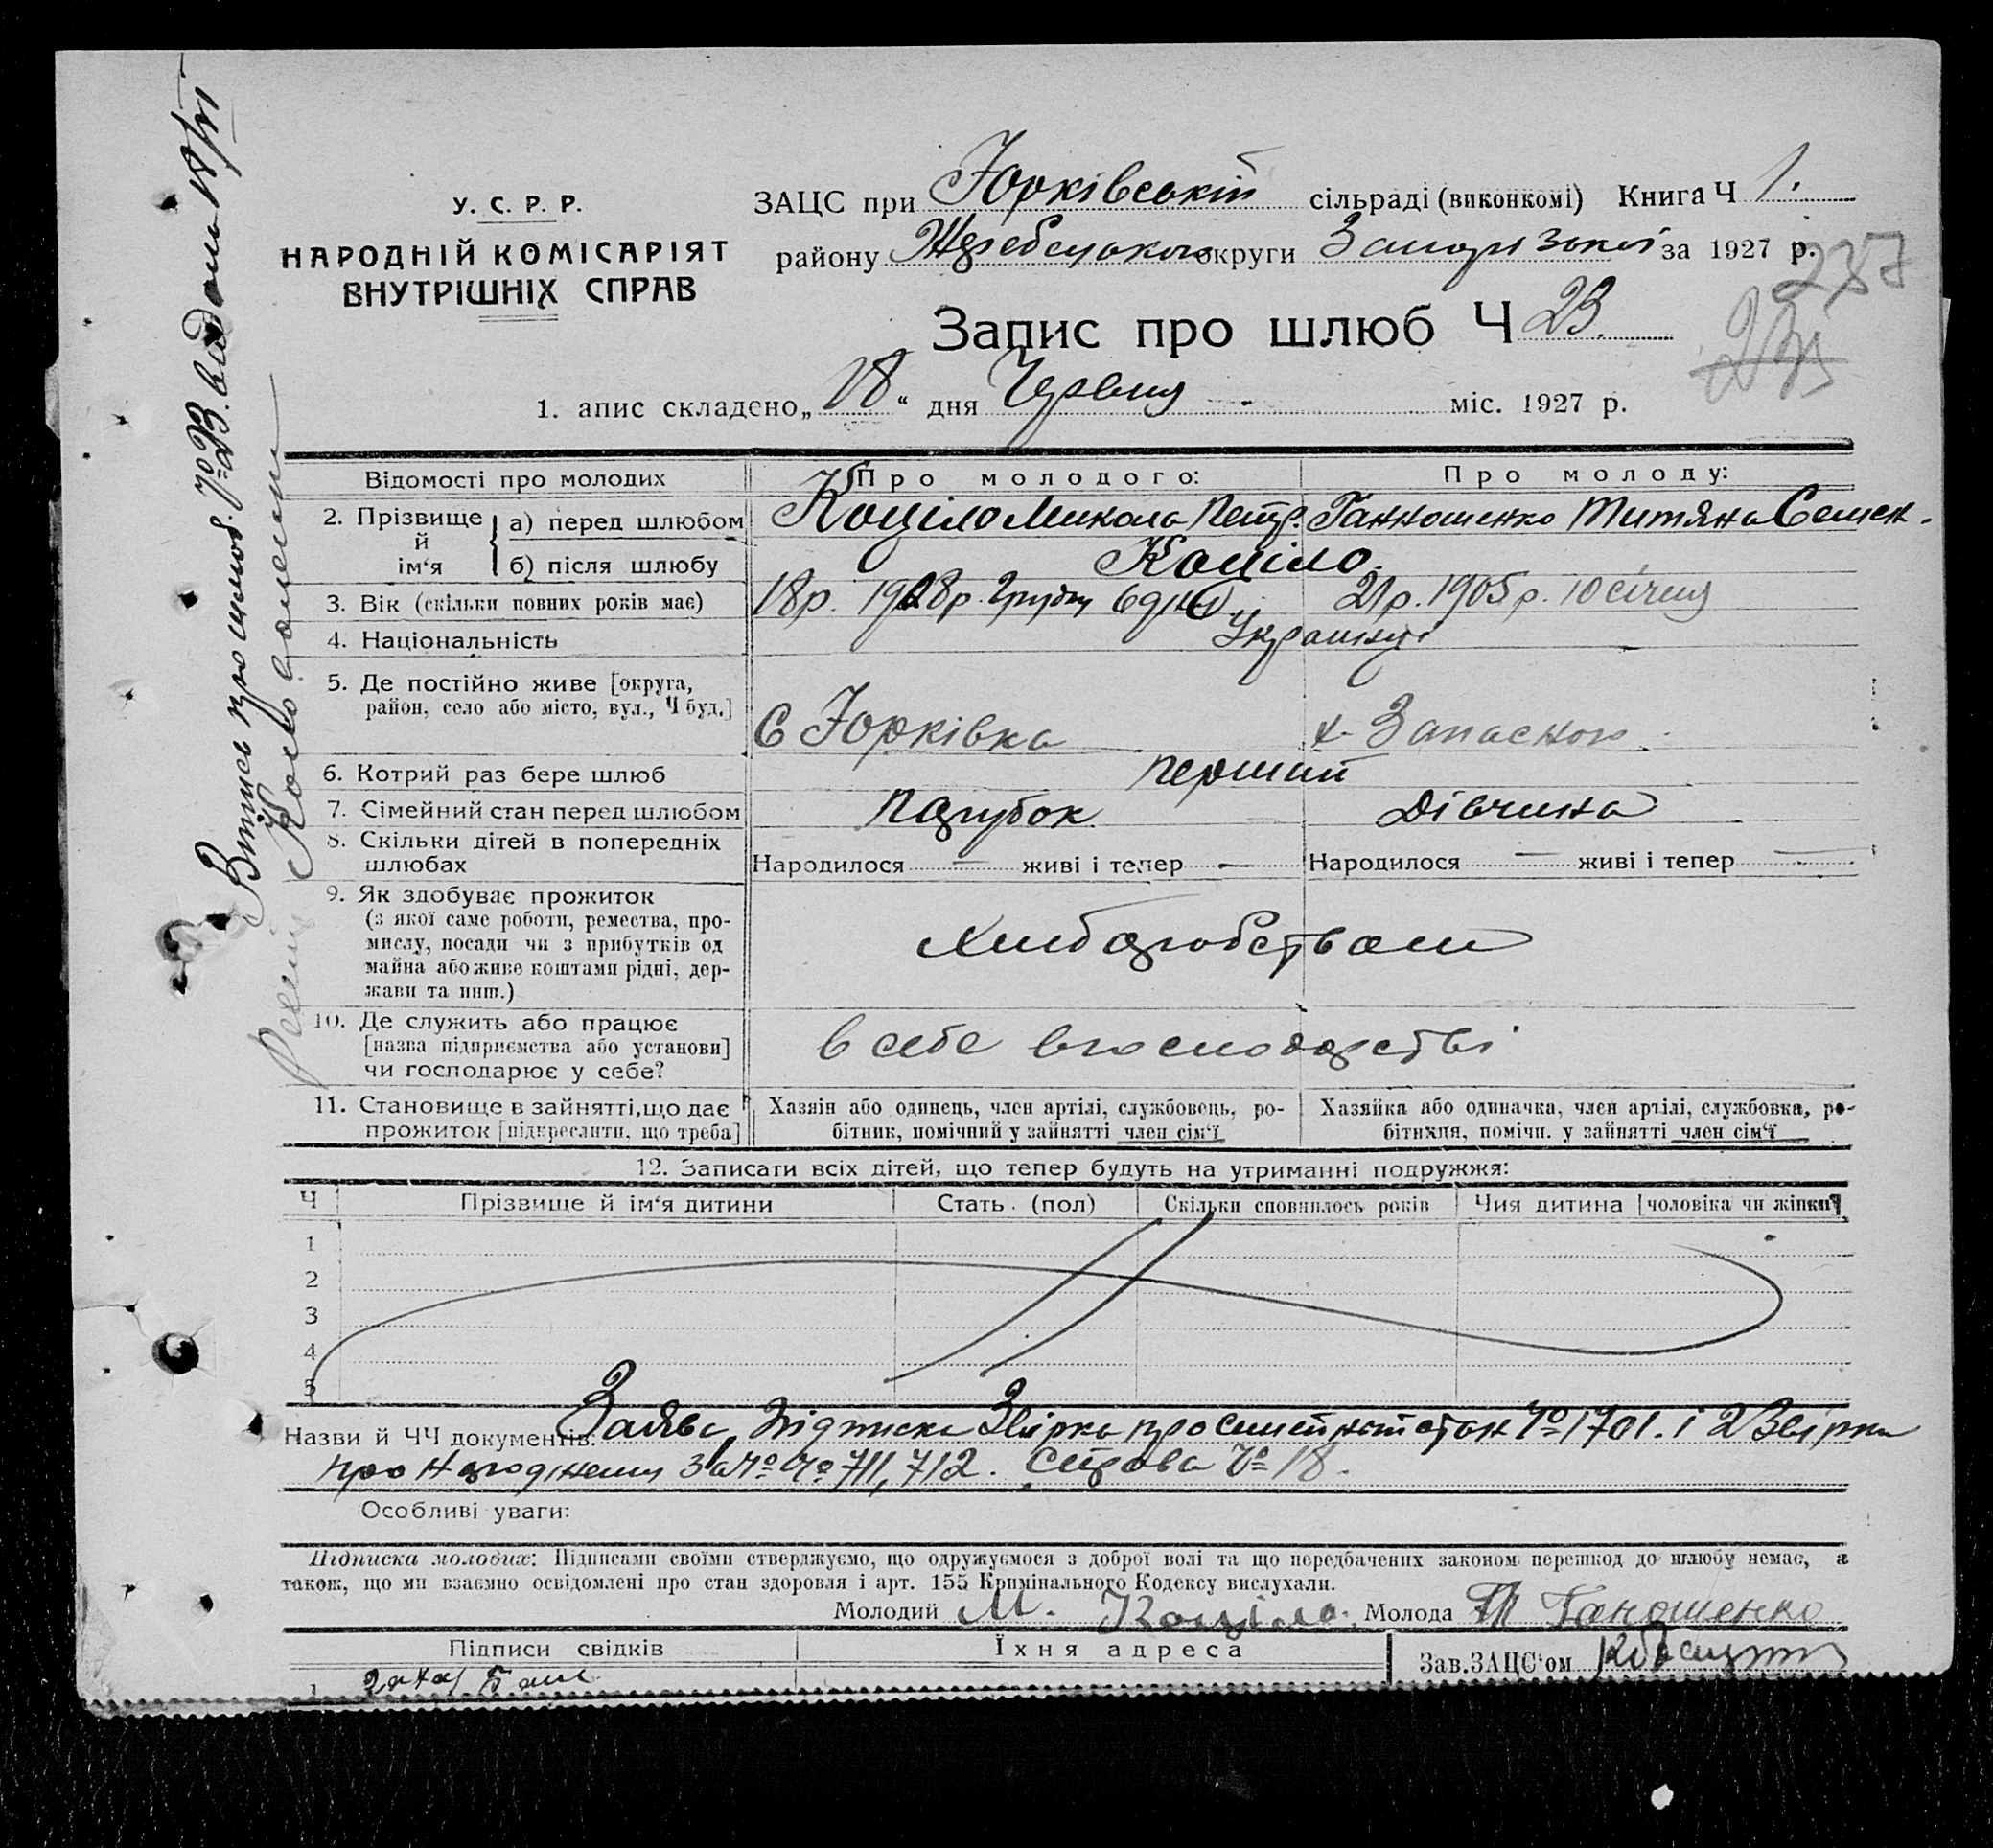 У. С. Р. Р.
НАРОДНІЙ КОМІСАРІЯТ
ВНУТРІШНІХ СПРАВ
ЗАЦС при Юрківській сільраді (виконкомі) Книга Ч 1.
району Жеребецького округи Запорізької за 1927 р.
237
Запис про шлюб Ч 23.
1. апис складено „18“ дня Червня міс. 1927 р.
Відомості про молодих
Про молодого:
Про молоду:
2. Прізвище й ім‘я
а) перед шлюбом
Коціло Микола Петр.
Ганношенко Титяна Семен.
б) після шлюбу
Коціло
3. Вік (скільки повних років має)
18р. 1908р. Грудня 6 дня
21р. 1905 р. 10 січня
4. Національність
Українці
5. Де постійно живе [округа, район, село або місто, вул., Ч буд.]
С Юрківка
х. Запасною
6. Котрий раз бере шлюб
перший
7. Сімейний стан перед шлюбом
Парубок
Дівчина
8. Скільки дітей в попередніх шлюбах
Народилося — живі і тепер —
Народилося — живі і тепер —
9. Як здобуває прожиток
(з якої саме роботи, ремества, про-
мислу, посади чи з прибутків од
майна або живе коштами рідні, дер-
жави та инш.)
хлибаробством
10. Де служить або працює
[назва підприємства або установи]
чи господарює у себе?
в себе в господарстві
11. Становище в зайнятті, що дає
прожиток [підкреслити, що треба]
Хазяїн або одинець, член артілі, службовець, ро-
бітник, помічний у зайнятті член сім‘ї
Хазяйка або одиначка, член артілі, службовка, ро-
бітниця, помічн. у зайнятті член сім‘ї
12. Записати всіх дітей, що тепер будуть на утриманні подружжя:
Ч
Прізвище й ім‘я дитини
Стать (пол)
Скільки сповнилось років
Чия дитина [чоловіка чи жінки]
1
2
3
4
5
Назви й ЧЧ документів: Заява, Підписка Звірка про Симейний стан Чо 1701. і 2 Звірки
про Народження за Чо Чо 711, 712. Справа Чо 18.
Особливі уваги:
Підписка молодих: Підписами своїми стверджуємо, що одружуємося з доброї волі та що передбачених законом перешкод до шлюбу немає, а
також, що ми взаємно освідомлені про стан здоровля і арт. 155 Кримінального Кодексу вислухали.
Молодий М. Коціло. Молода Т Ганошенко
Підписи свідків
Їхня адреса
Зав. ЗАЦС‘ом
1
Витись про шлюб Чо 23.